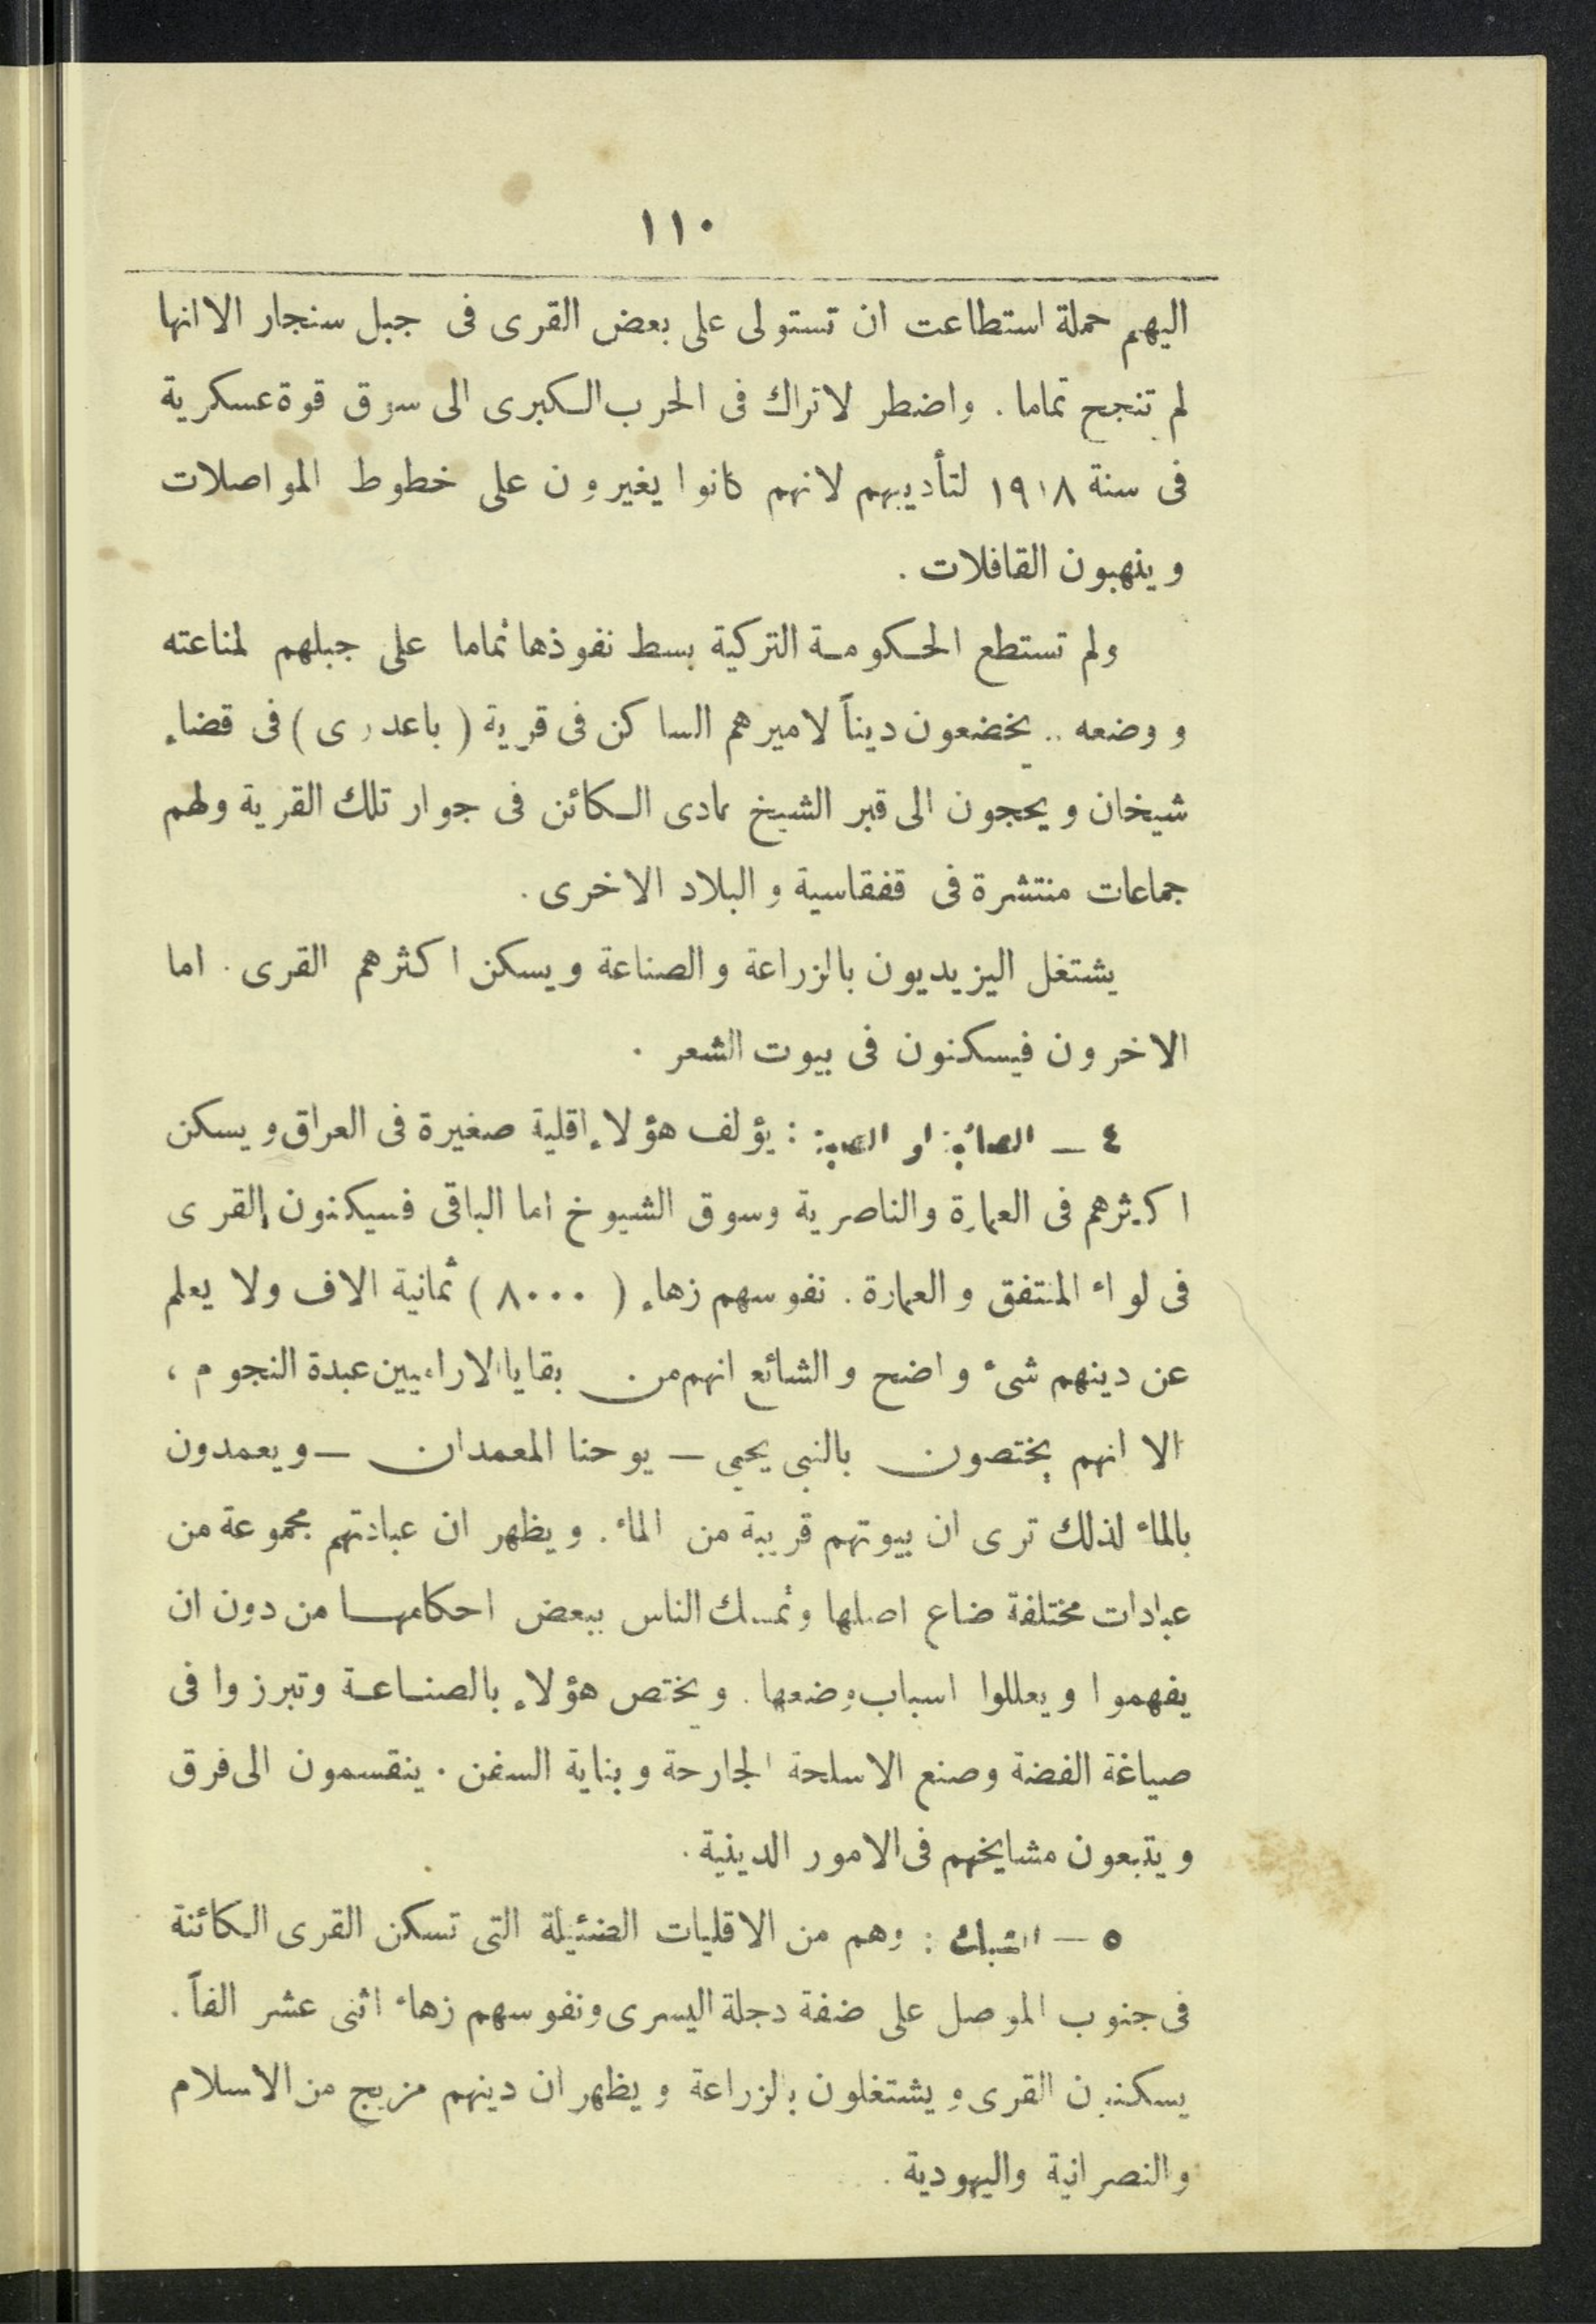 ١١٠
اليهم حملة استطاعت ان تستولى على بعض القرى فى جبل سنجار الا انها
لم تنجح تماما . واضطر لاتراك فى الحرب الكبرى الى سوق قوة عسكرية
فى سنة ١٩١٨ لتأديبهم لانهم كانوا يغيرون على خطوط المواصلات
وينهبون القافلات .
ولم تستطع الحكومة التركية بسط نفوذها تماما على جبلهم لمناعته
ووضعه .. يخضعون ديناً لاميرهم الساكن فى قرية ( باعدرى ) فى قضاء
شيخان ويحجون الى قبر الشيخ عادى الكائن فى جوار تلك القرية ولهم
جماعات منتشرة فى قفقاسية والبلاد الاخرى .
يشتغل اليزيديون بالزراعة والصناعة ويسكن اكثرهم القرى . اما
الاخرون فيسكنون فى بيوت الشعر .
٤ – الصائبة او الصبة : يؤلف هؤلاء اقلية صغيرة فى العراق ويسكن
اكثرهم فى العمارة والناصرية وسوق الشيوخ اما الباقى فسيكنون القرى
فى لواء المنتفق والعمارة . نفوسهم زهاء ( ٨٠٠٠ ) ثمانية الاف ولا يعلم
عن دينهم شىء واضح والشائع انهم من بقايا الاراميين عبدة النجوم ،
الا انهم يختصون بالنبى يحيى – يوحنا المعمدان – ويعمدون
بالماء لذلك ترى ان بيوتهم قريبة من الماء . ويظهر ان عبادتهم مجموعة من
عبادات مختلفة ضاع اصلها وتمسك الناس ببعض احكامها من دون ان
يفهموا ويعللوا اسباب وضعها . ويختص هؤلاء بالصناعة وتبرزوا فى
صياغة الفضة وصنع الاسلحة الجارحة وبناية السفن . ينقسمون الى فرق
ويتبعون مشايخهم فى الامور الدينية .
٥ – الشبك : وهم من الاقليات الضئيلة التى تسكن القرى الكائنة
فى جنوب الموصل على ضفة دجلة اليسرى ونفوسهم زهاء اثنى عشر الفاً .
يسكنون القرى ويشتغلون بالزراعة ويظهر ان دينهم مزيج من الاسلام
والنصرانية واليهودية .